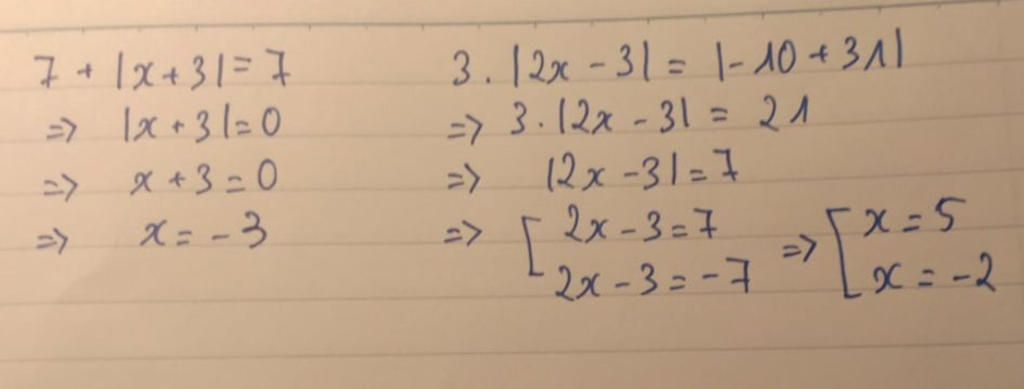 7 + |x + 3| = 7
=> |x + 3| = 0
=> x + 3 = 0
=> x = -3
3 . |2x - 3| = |-10 + 31|
=> 3 . |2x - 3| = 21
=> |2x - 3| = 7
=> [ 2x - 3 = 7 => [ x = 5
2x - 3 = -7 x = -2